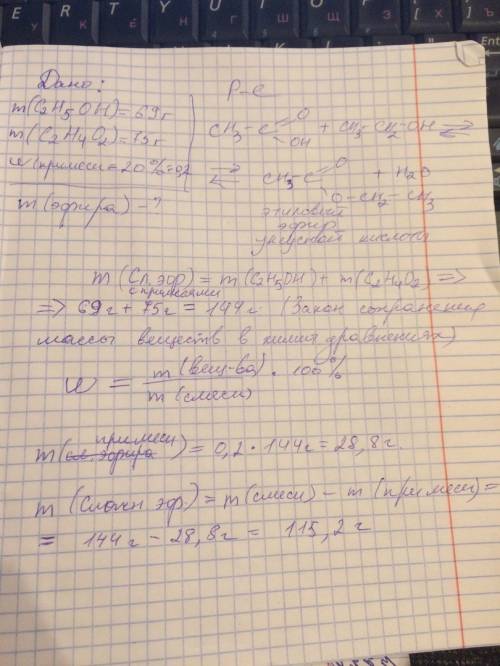 E R T Y U
У К Е Н Г Ш Х Ъ
Дано:
Р-е
m(C2H5OH)=69г
m(C2H4O2)=75г
w(примеси)=20%=0,2
m(эфира)-?
CH3-C O OH + CH3-CH2-OH ⇄
⇄ CH3-C O O-CH2-CH3 + H2O
этиловый
эфир
уксусной кислоты
m(Сл. эфр) = m(C2H5OH) + m(C2H4O2) =>
с примесями
=> 69г + 75г = 144г (Закон сохранения
массы веществ в химич уравнениях)
w = m(вещ-ва) / m(смеси) · 100%
примеси
m( ) = 0,2 · 144г = 28,8г.
m (Сложн эф) = m(смеси) - m(примеси) =
= 144г - 28,8г = 115,2г